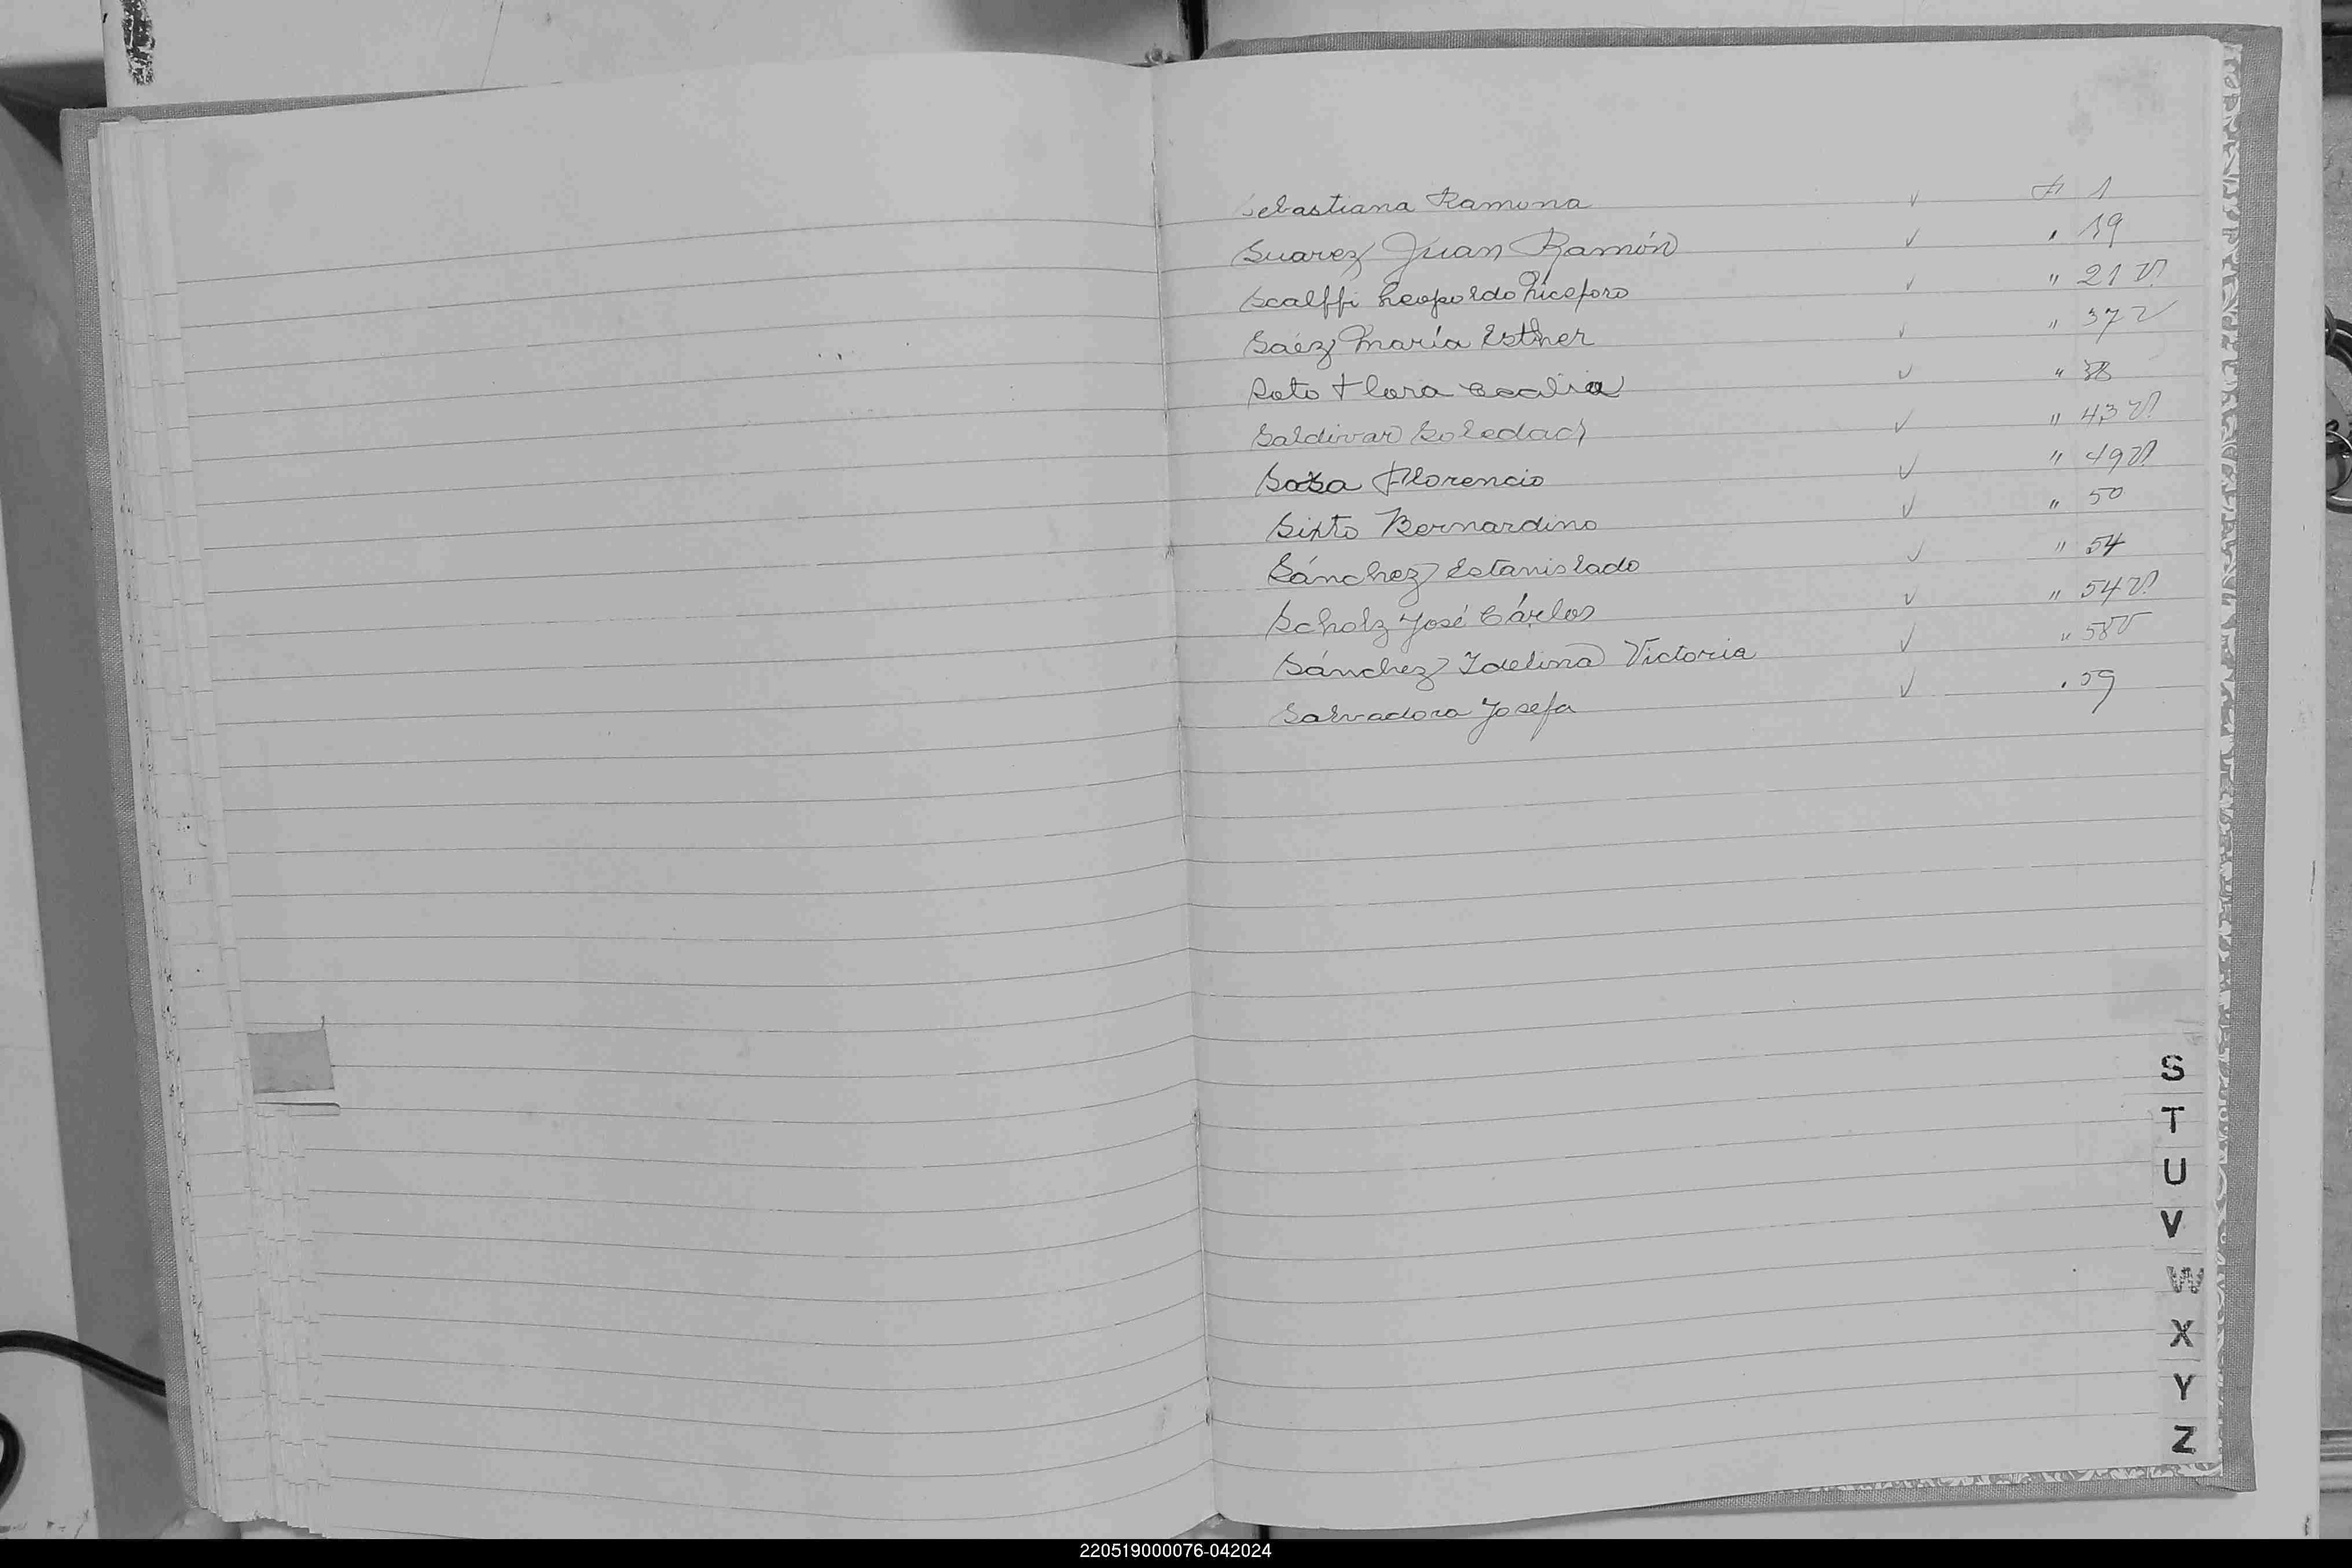 Sebastiana Ramona ✓ F 1
Suarez Juan Ramón ✓ " 19
Scalffi Leopoldo Niceforo ✓ " 21 v
Saéz María Esther ✓ " 37 v
Soto Flora Cecilia ✓ " 38
Saldivar Soledad ✓ " 43 v
Sosa Florencio ✓ " 49 v
Sixto Bernardino ✓ " 50
Sánchez Estanislado ✓ " 54
Scholz José Cárlos ✓ " 54 v
Sánchez Idelina Victoria ✓ " 58 v
Salvadora Josefa ✓ " 59
S
T
U
V
W
X
Y
Z
220519000076-042024